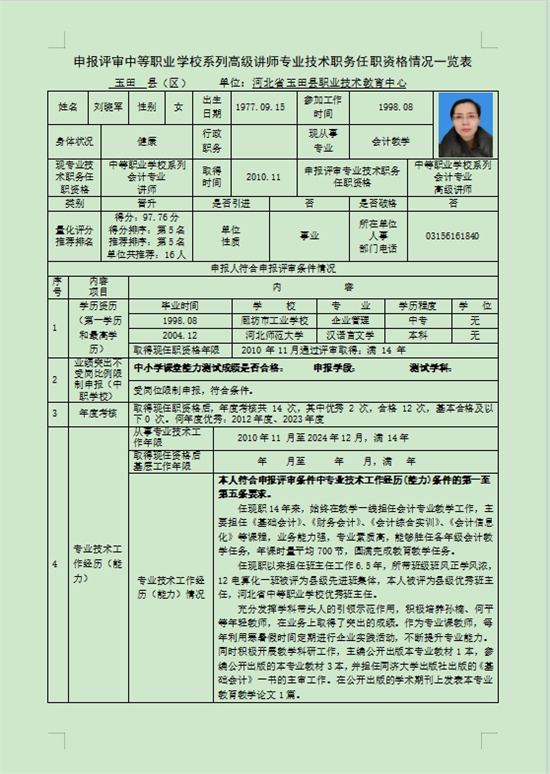 申报评审中等职业学校系列高级讲师专业技术职务任职资格情况一览表
玉田 县（区） 单位：河北省玉田县职业技术教育中心
姓名 刘晓军 性别 女 出生日期 1977.09.15 参加工作时间 1998.08
身体状况 健康 行政职务 现从事专业 会计教学
现专业技术职务任职资格 中等职业学校系列会计专业讲师 取得时间 2010.11 申报评审专业技术职务任职资格 中等职业学校系列会计专业高级讲师
类别 晋升 是否引进 否 是否破格 否
量化评分推荐排名 得分：97.76分
得分排序：第5名
推荐排序：第5名
单位共推荐：16人
单位性质 事业 所在单位人事部门电话 03156161840
申报人符合申报评审条件情况
序号 内容项目 内 容
1 学历资历（第一学历和最高学历） 毕业时间 学 校 专 业 学历程度 学 位
1998.08 廊坊市工业学校 企业管理 中专 无
2004.12 河北师范大学 汉语言文学 本科 无
取得现任职资格年限 2010 年11月通过评审取得；满 14 年
2 业绩突出不受岗位比例限制申报（中职学校） 中小学课堂能力测试成绩是否合格： 申报学段： 测试学科：
受岗位限制申报，符合条件。
3 年度考核 取得现任职资格后，年度考核共 14 次，其中优秀 2 次，合格 12 次，基本合格及以
下 0 次。何年度优秀：2012年度、2023年度
4 专业技术工作经历（能力） 从事专业技术工作年限 2010年11 月至2024年12月，满 14年
取得现任资格后基层工作年限 年 月至 年 月，满 年
专业技术工作经历（能力）情况
本人符合申报评审条件中专业技术工作经历(能力)条件的第一至
第五条要求。
任现职14年来，始终在教学一线担任会计专业教学工作，主
要担任《基础会计》、《财务会计》、《会计综合实训》、《会计信息
化》等课程，业务能力强，专业素质高，能够胜任各年级会计教
学任务，年课时量平均700节，圆满完成教育教学任务。
任现职以来担任班主任工作6.5年，所带班级班风正学风浓，
12电算化一班被评为县级先进班集体，本人被评为县级优秀班主
任，河北省中等职业学校优秀班主任。
充分发挥学科带头人的引领示范作用，积极培养孙楠、何平
等年轻教师，在业务上取得了突出的成绩。作为专业课教师，每
年利用寒暑假时间定期进行企业实践活动，不断提升专业能力。
同时积极开展教学科研工作，主编公开出版本专业教材1本，参
编公开出版的本专业教材3本，并担任同济大学出版社出版的《基
础会计》一书的主审工作。在公开出版的学术期刊上发表本专业
教育教学论文1篇。